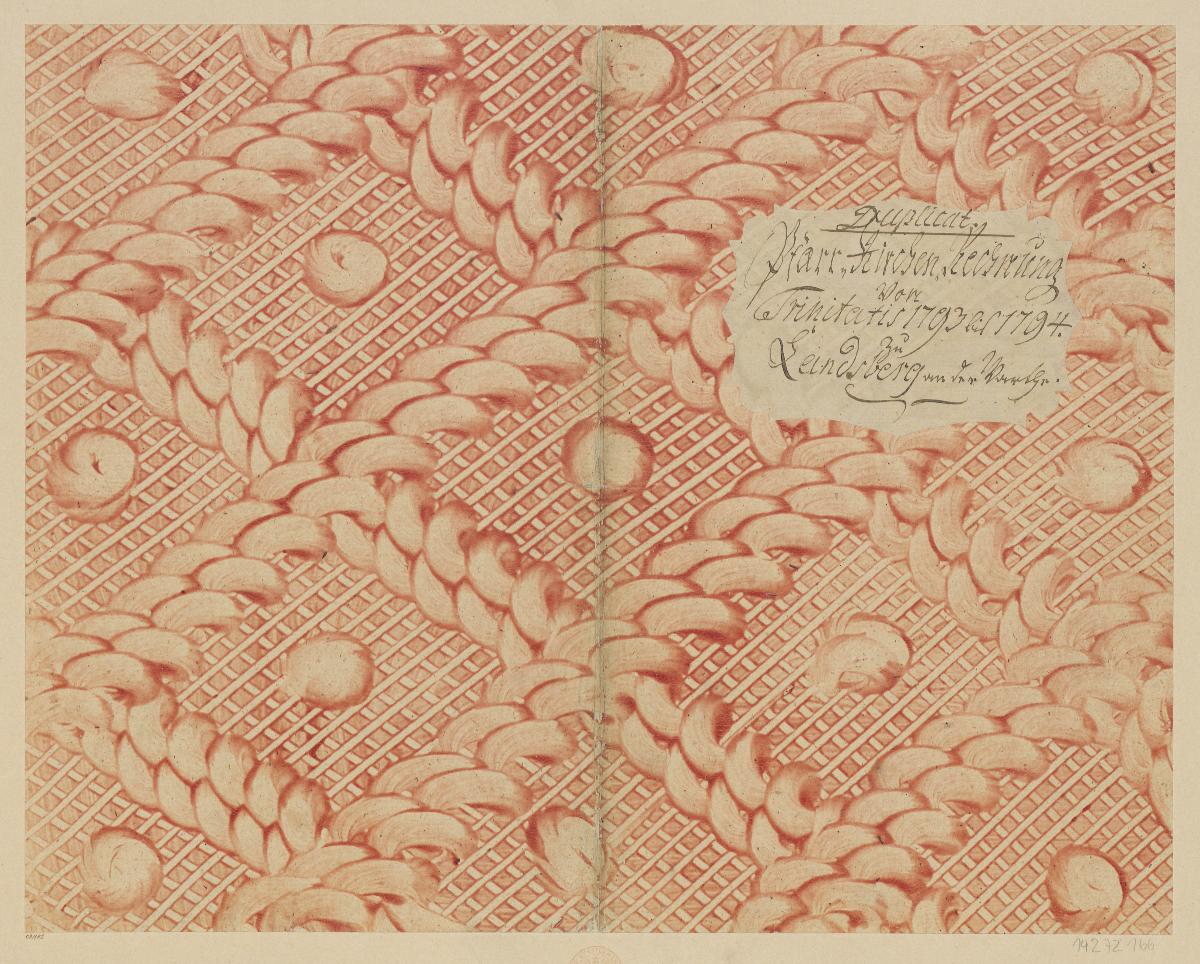 Duplicat,
Pfarr-Kirchen Rechnung
Von
Trinitatis 1793 bis 1794.
Zu
Landsberg an der Warthe.
14272 166